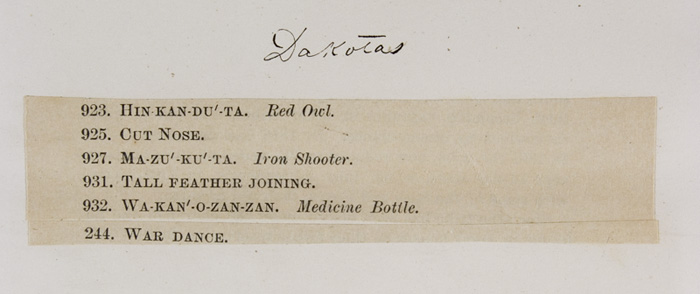 Dakotas
923. HIN-KAN-DU'-TA. Red Owl.
925. CUT NOSE.
927. MA-ZU'-KU'-TA. Iron Shooter.
931. TALL FEATHER JOINING.
932. WA-KAN'-O-ZAN-ZAN. Medicine Bottle.
244. WAR DANCE.